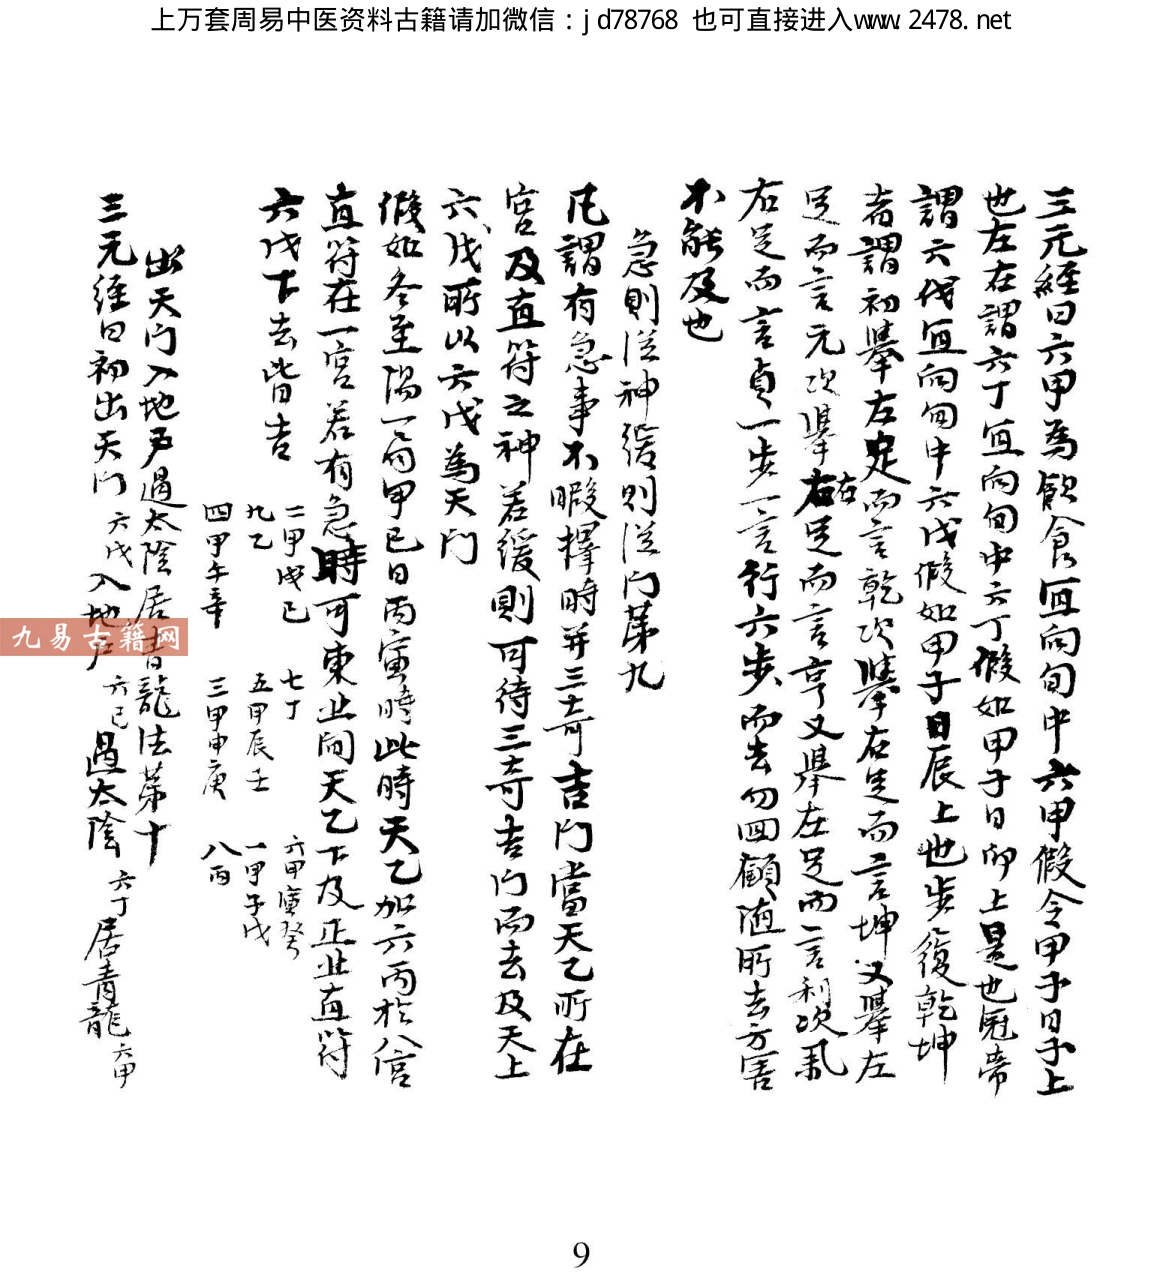 上万套周易中医资料古籍请加微信：jd78768 也可直接进入www.2478.net
三元經曰六甲為飲食宜向旬中六甲假令甲子日子上
也左在謂六丁宜向旬中六丁假如甲子日卯上是也冠帶
謂六伐宜向旬中六戊假如甲子日辰上也步復乾坤
者謂初舉左足而言乾次舉右足而言坤又舉左
足而言元次舉右右足而言亨又舉左足而言利次乳
右足而言貞一步一言行六步而去勿回顧随所去方害
不能及也
急則従神緩則従门苐九
凡謂有急事不暇擇時并三奇吉门當天乙所在
宮及直符之神若緩則可待三奇吉门而去及天上
六戊所以六戊為天门
假如冬至陽一局甲已日丙寅時此時天乙加六丙於八宫
直符在一宮若有急時可東北向天乙下及正北直符
六戊下去皆吉
二甲戌已 七丁 六甲寅癸
九乙 五甲辰壬 一甲子戊
四甲午辛 三甲申庚 八丙
出天门入地户過太陰居青龍法苐十
三元經曰初出天门六戊入地户六已過太陰六丁居青龍六甲
九易古籍网
9